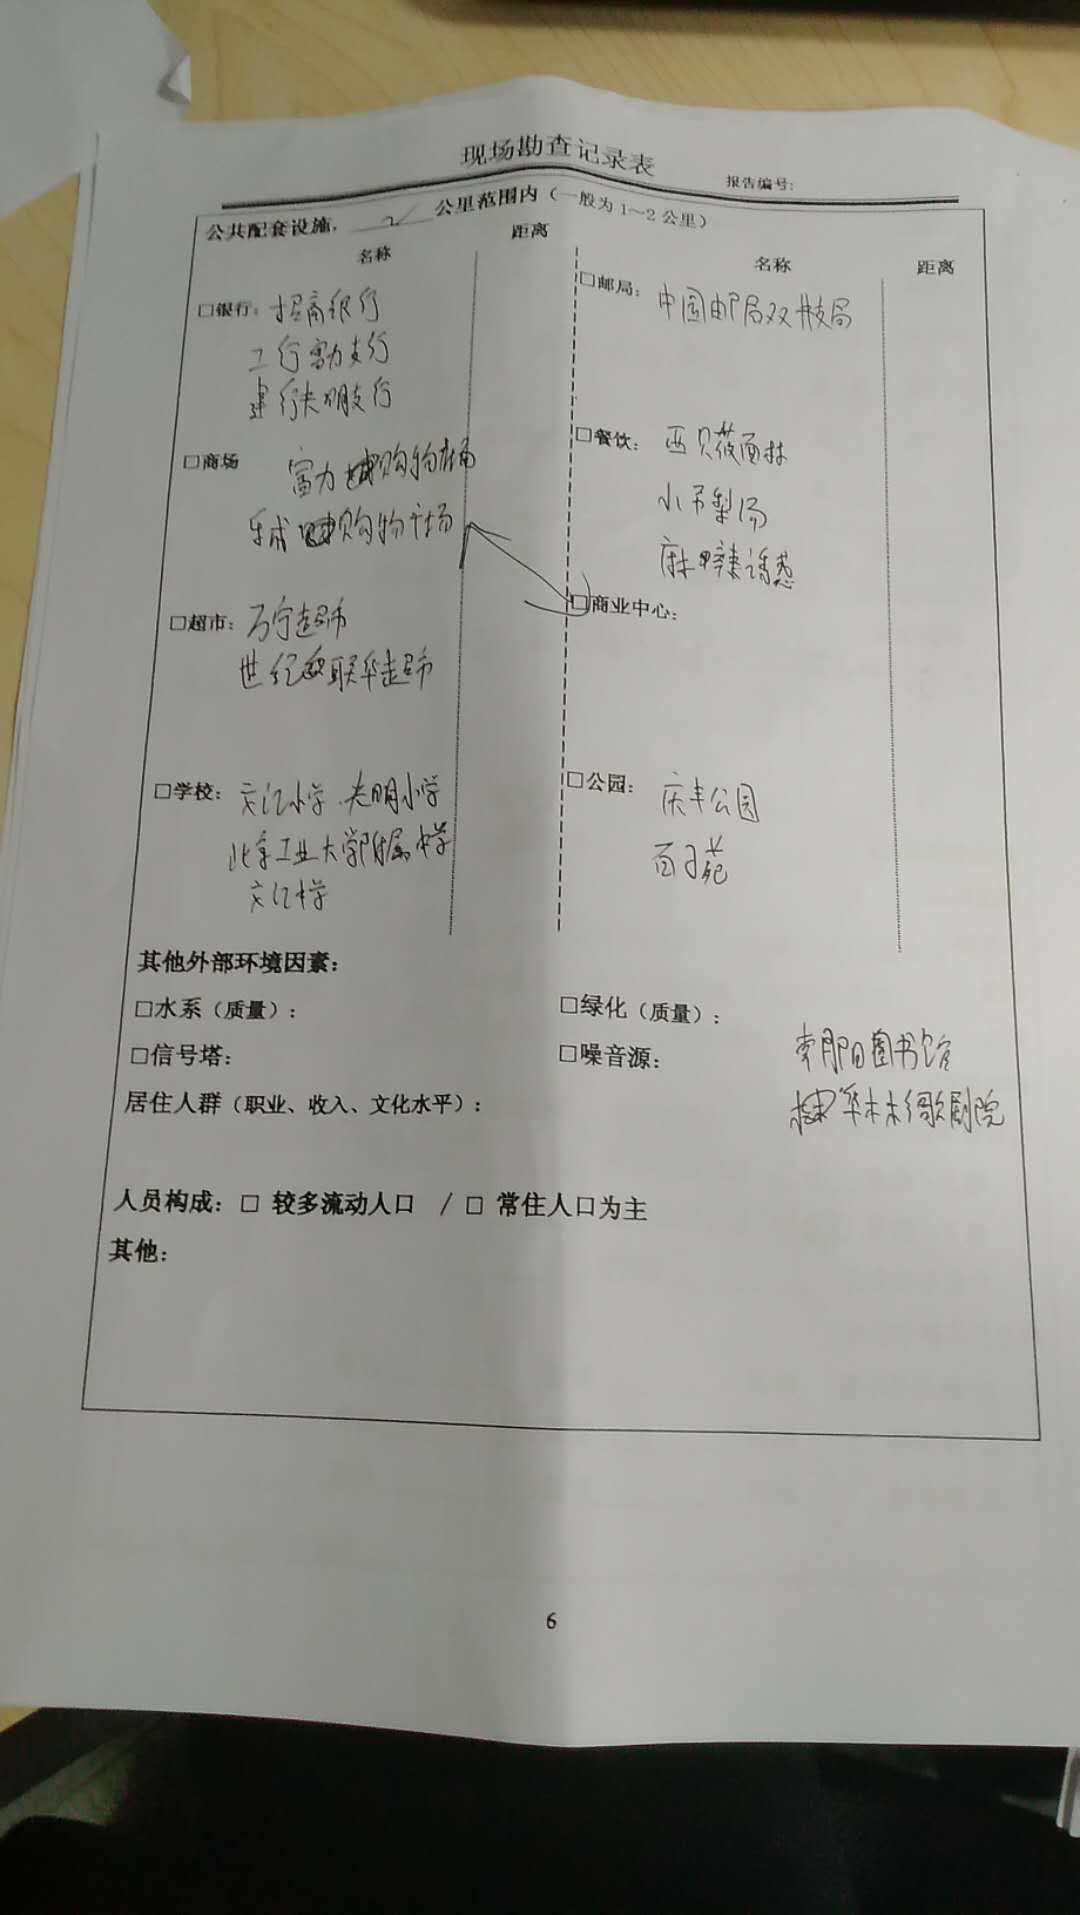 现场勘查记录表
报告编号:
公共配套设施, 2 公里范围内（一般为1～2公里）
名称 距离
□银行: 招商银行
工行富力支行
建行光明支行
□商场 富力城购物广场
购物广场
□超市: 万宁超市
世纪联华超市
□学校: 文汇小学、光明小学
北京工业大学附属中学
文汇中学
名称 距离
□邮局: 中国邮局双井支局
□餐饮: 西贝莜面村
小吊梨汤
麻辣诱惑
□商业中心:
□公园: 庆丰公园
百子苑
其他外部环境因素:
□水系（质量）: □绿化（质量）:
□信号塔: □噪音源: 朝阳图书馆
居住人群（职业、收入、文化水平）: 华彬歌剧院
人员构成: □ 较多流动人口 / □ 常住人口为主
其他:
6